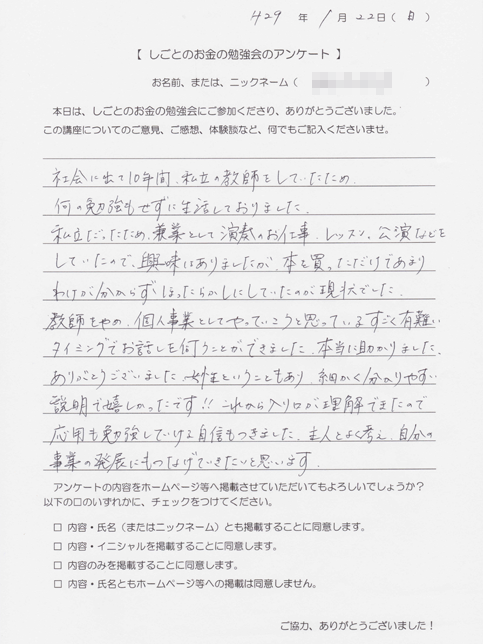 H29 年 1 月 22日 ( 日 )
【 しごとのお金の勉強会のアンケート 】
お名前、または、ニックネーム ( )
本日は、しごとのお金の勉強会にご参加くださり、ありがとうございました。
この講座についてのご意見、ご感想、体験談など、何でもご記入くださいませ。
社会に出て10年間、私立の教師をしていたため、
何の勉強もせずに生活しておりました。
私立だったため、兼業として演奏のお仕事、レッスン、公演などを
していたので、興味はありましたが、本を買っただけであまり
わけが分からずほったらかしにしていたのが現状でした。
教師をやめ、個人事業としてやっていこうと思っているすごく有難い
タイミングでお話しを伺うことができました。本当に助かりました。
ありがとうございました。女性ということもあり、細かく分かりやすい
説明で嬉しかったです!! これから入り口が理解できたので
応用も勉強していける自信もつきました。主人とよく考え、自分の
事業の発展にもつなげていきたいと思います。
アンケートの内容をホームページ等へ掲載させていただいてもよろしいでしょうか?
以下の□のいずれかに、チェックをつけてください。
□ 内容・氏名(またはニックネーム)とも掲載することに同意します。
□ 内容・イニシャルを掲載することに同意します。
□ 内容のみを掲載することに同意します。
□ 内容・氏名ともホームページ等への掲載は同意しません。
ご協力、ありがとうございました!